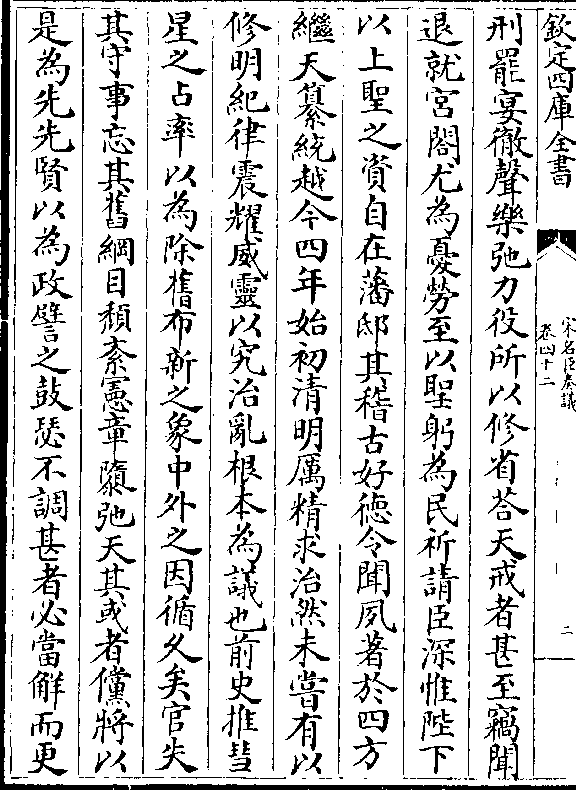 欽定四庫全書
宋名臣奏議
卷四十二
二
刑罷宴徹聲樂弛力役所以修省荅天戒者甚至竊聞
退就宮閤尤為憂勞至以聖躬為民祈請臣深惟陛下
以上聖之資自在藩邸其稽古好德令聞夙著於四方
繼天纂統越今四年始初清明厲精求治然未嘗有以
修明紀律震耀威靈以究治亂根本為議也前史推彗
星之占率以為除舊布新之象中外之因循久矣官失
其守事忘其舊綱目頹紊憲章隳弛天其或者儻將以
是為先先賢以為政譬之鼓瑟不調甚者必當解而更